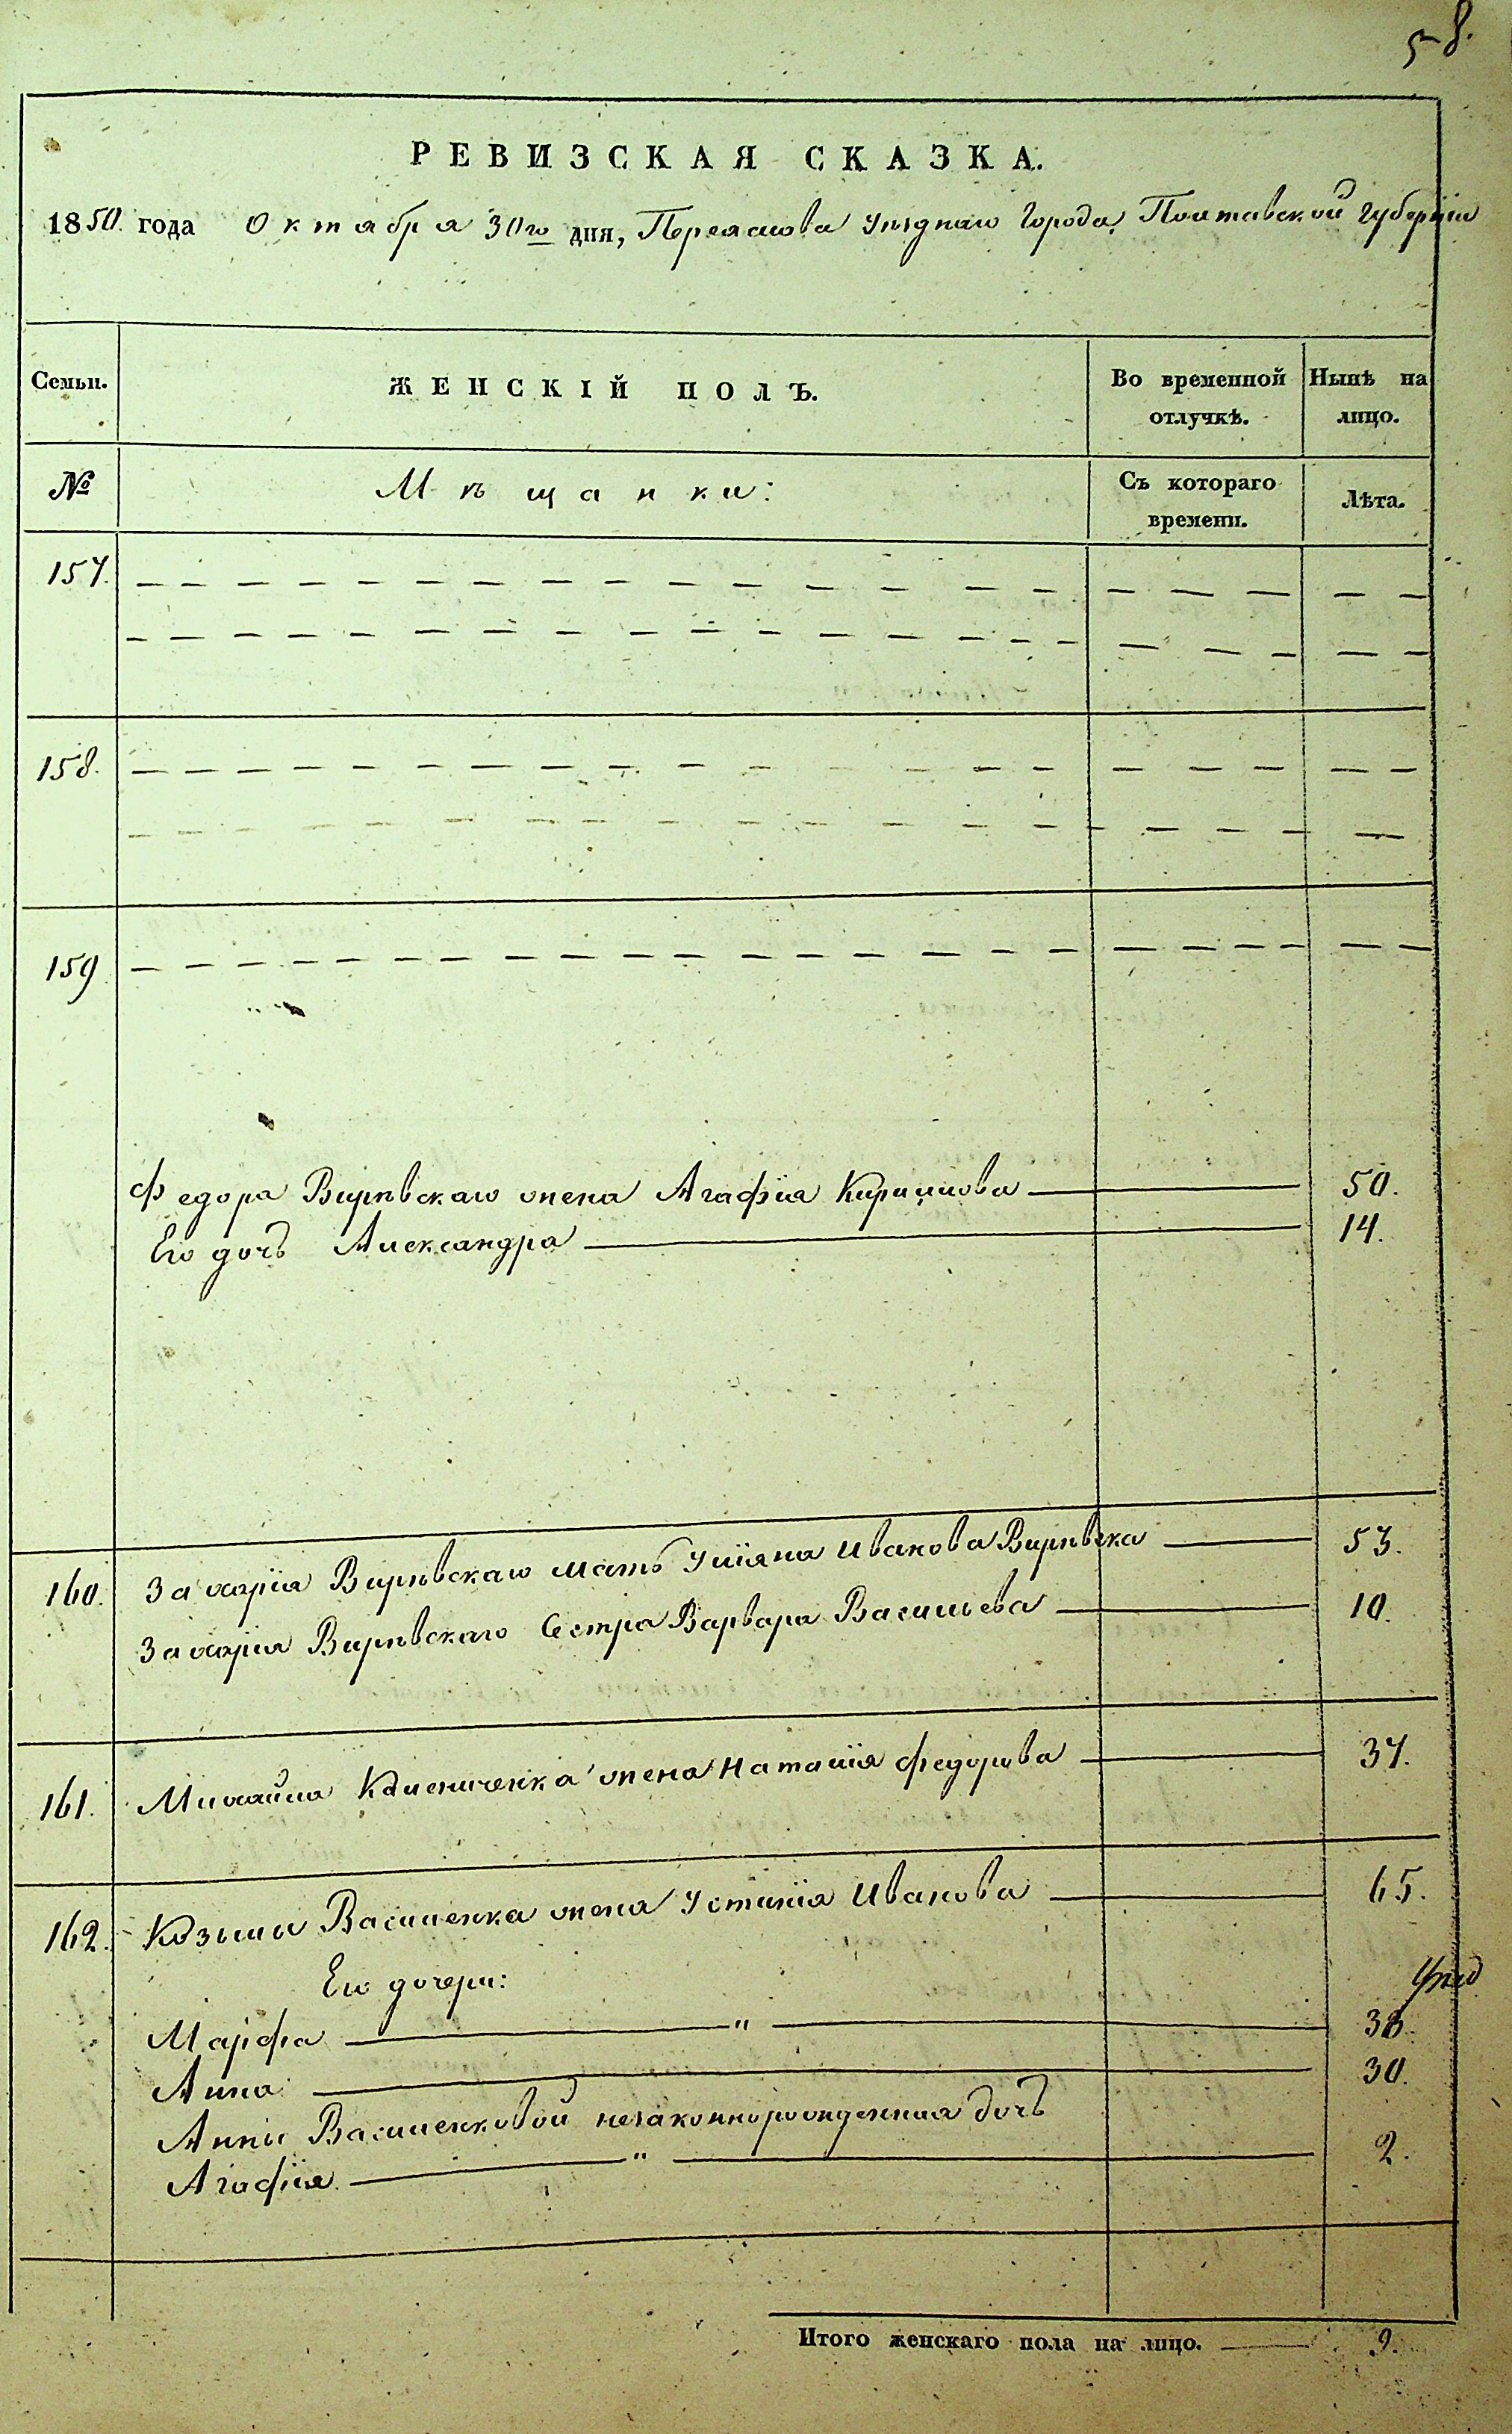 58.
РЕВИЗСКАЯ СКАЗКА.
1850 года Октября 30го дня, Переяслова Уѣзднаго Города, Полтавской Губерніи
Семьи. ЖЕНСКІЙ ПОЛЪ. Во временной отлучкѣ. Нынѣ на лицо.
№ Мѣщанки: Съ котораго времени. Лѣта.
157.
158.
159
Федора Вирѣвскаго жена Агафія Кирилова 50.
Его дочь Александра 14.
160. Захарія Вирѣвскаго мать Уліяна Иванова Вирѣвска 53.
Захарія Вирѣвскаго Сестра Варвара Васильева 10.
161. Михайла жена Наталія Федорова 37.
162. Козьмы Василенка жена Устинія Иванова 65.
Его дочери:
Марфа " 38.
Анна 30.
Анны Василенковой незаконнорожденная дочь
Агафія " 2.
Итого женскаго пола на лицо. 9.